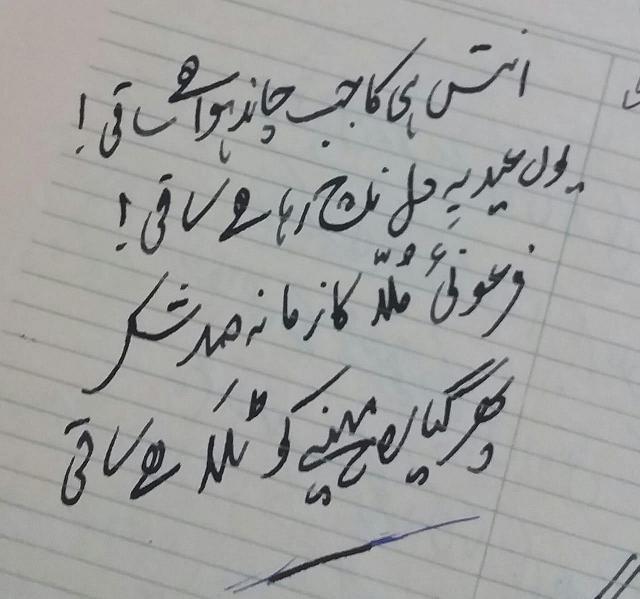 انتس ہی کا جب چاند ہوا ہے ساقی!
یوں عید پہ دل ناچ رہا ہے ساقی!
فرعونیٔ مُلّا کا زمانہ صد شکر
پھر گیارہ مہینے کو ٹلا ہے ساقی